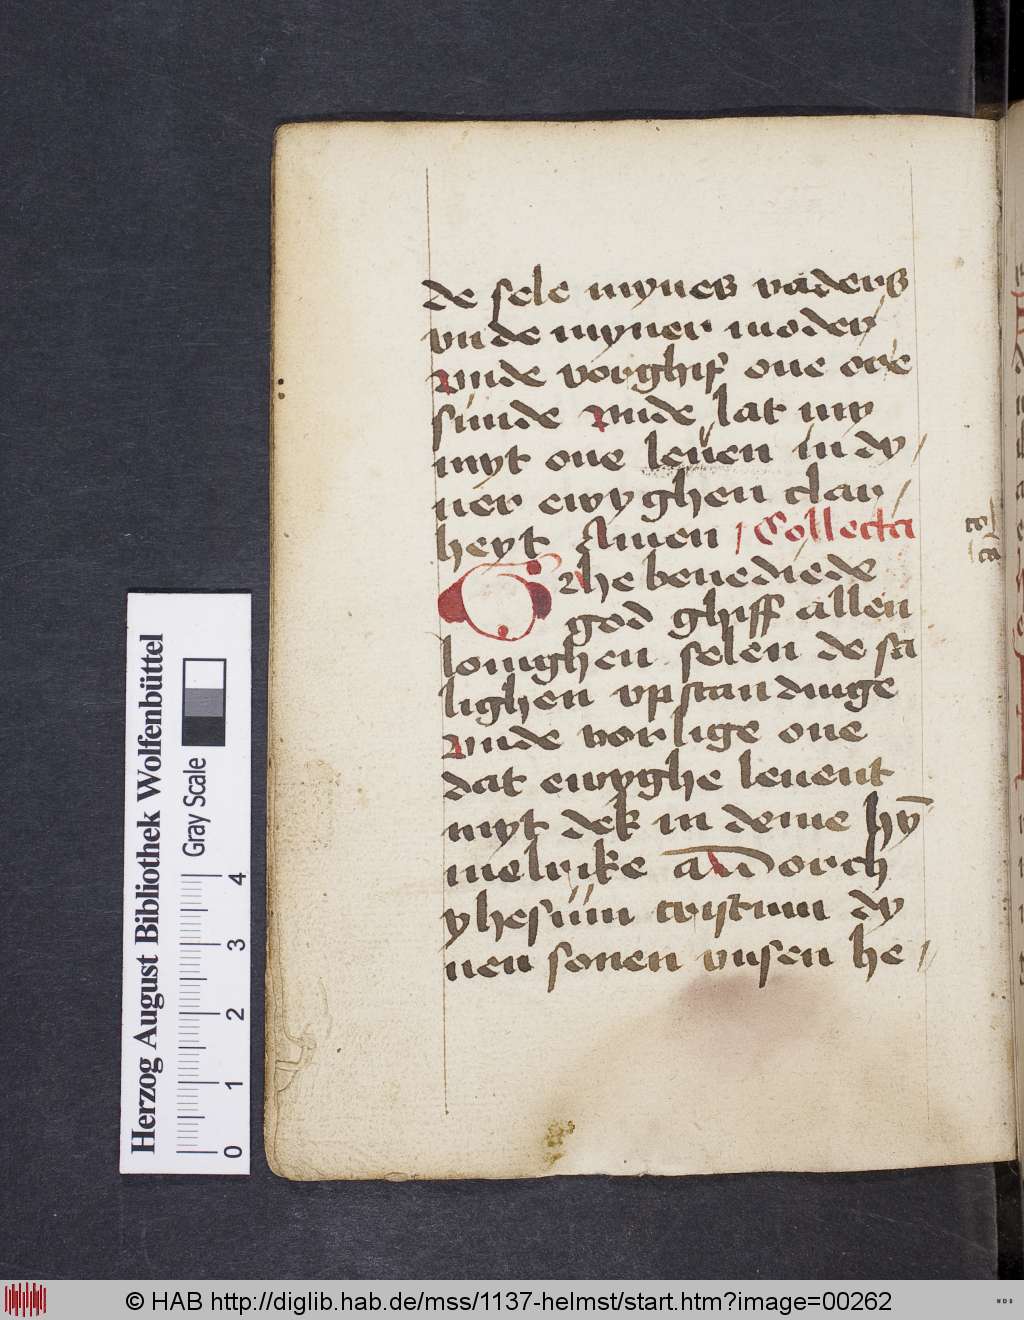 de sele mynes vaders
vnde myner moder
vnde vorghif one ore
sunde vnde lat my
myt one leuen in dy/
ner ewyghen clar/
heyt Amen / Collecta
Orhe benediede
god ghiff allen
louighen selen de sa
lighen vpstandinge
vnde vorlige one
dat ewyghe leuent
myt dek in deme hȳ
melrike am̄ Dorch
yhesum cristum dy
nen sonen vnsen he/
Herzog August Bibliothek Wolfenbüttel
Gray Scale
0 1 2 3 4
© HAB http://diglib.hab.de/mss/1137-helmst/start.htm?image=00262